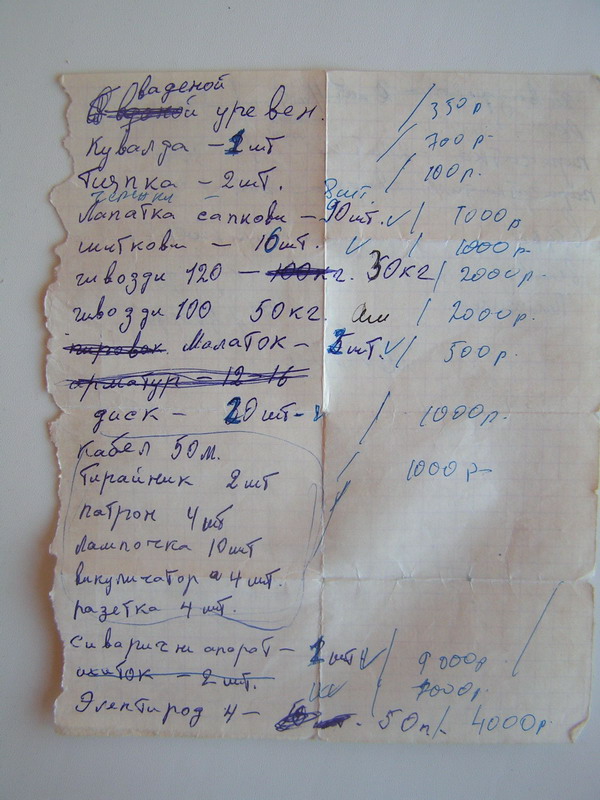 ваденой
уревен. / 350р
Кувалда - 1шт / 700р-
Тияпка - 2шт. / 100р.
черенки - 8шт.
Лапатка сапкови - 90шт. V / 7000р
штикови - 16шт. V / 1000р-
гивозди 120 - 100кг. 50кг / 2000р-
гивозди 100 50кг. / 2000р.
Малаток - шт. V / 500р.
арматур - 12-16
диск - 20шт- / 1000р-
кабел 50м.
тирайник 2шт / 1000р-
патрон 4шт
лампочка 10шт
викуличатор 4шт.
разетка 4шт.
сиварични апорот - шт V / 9000р
шиток - 2шт. / 7000р.
Электирод 4 - 50п/- 4000р.